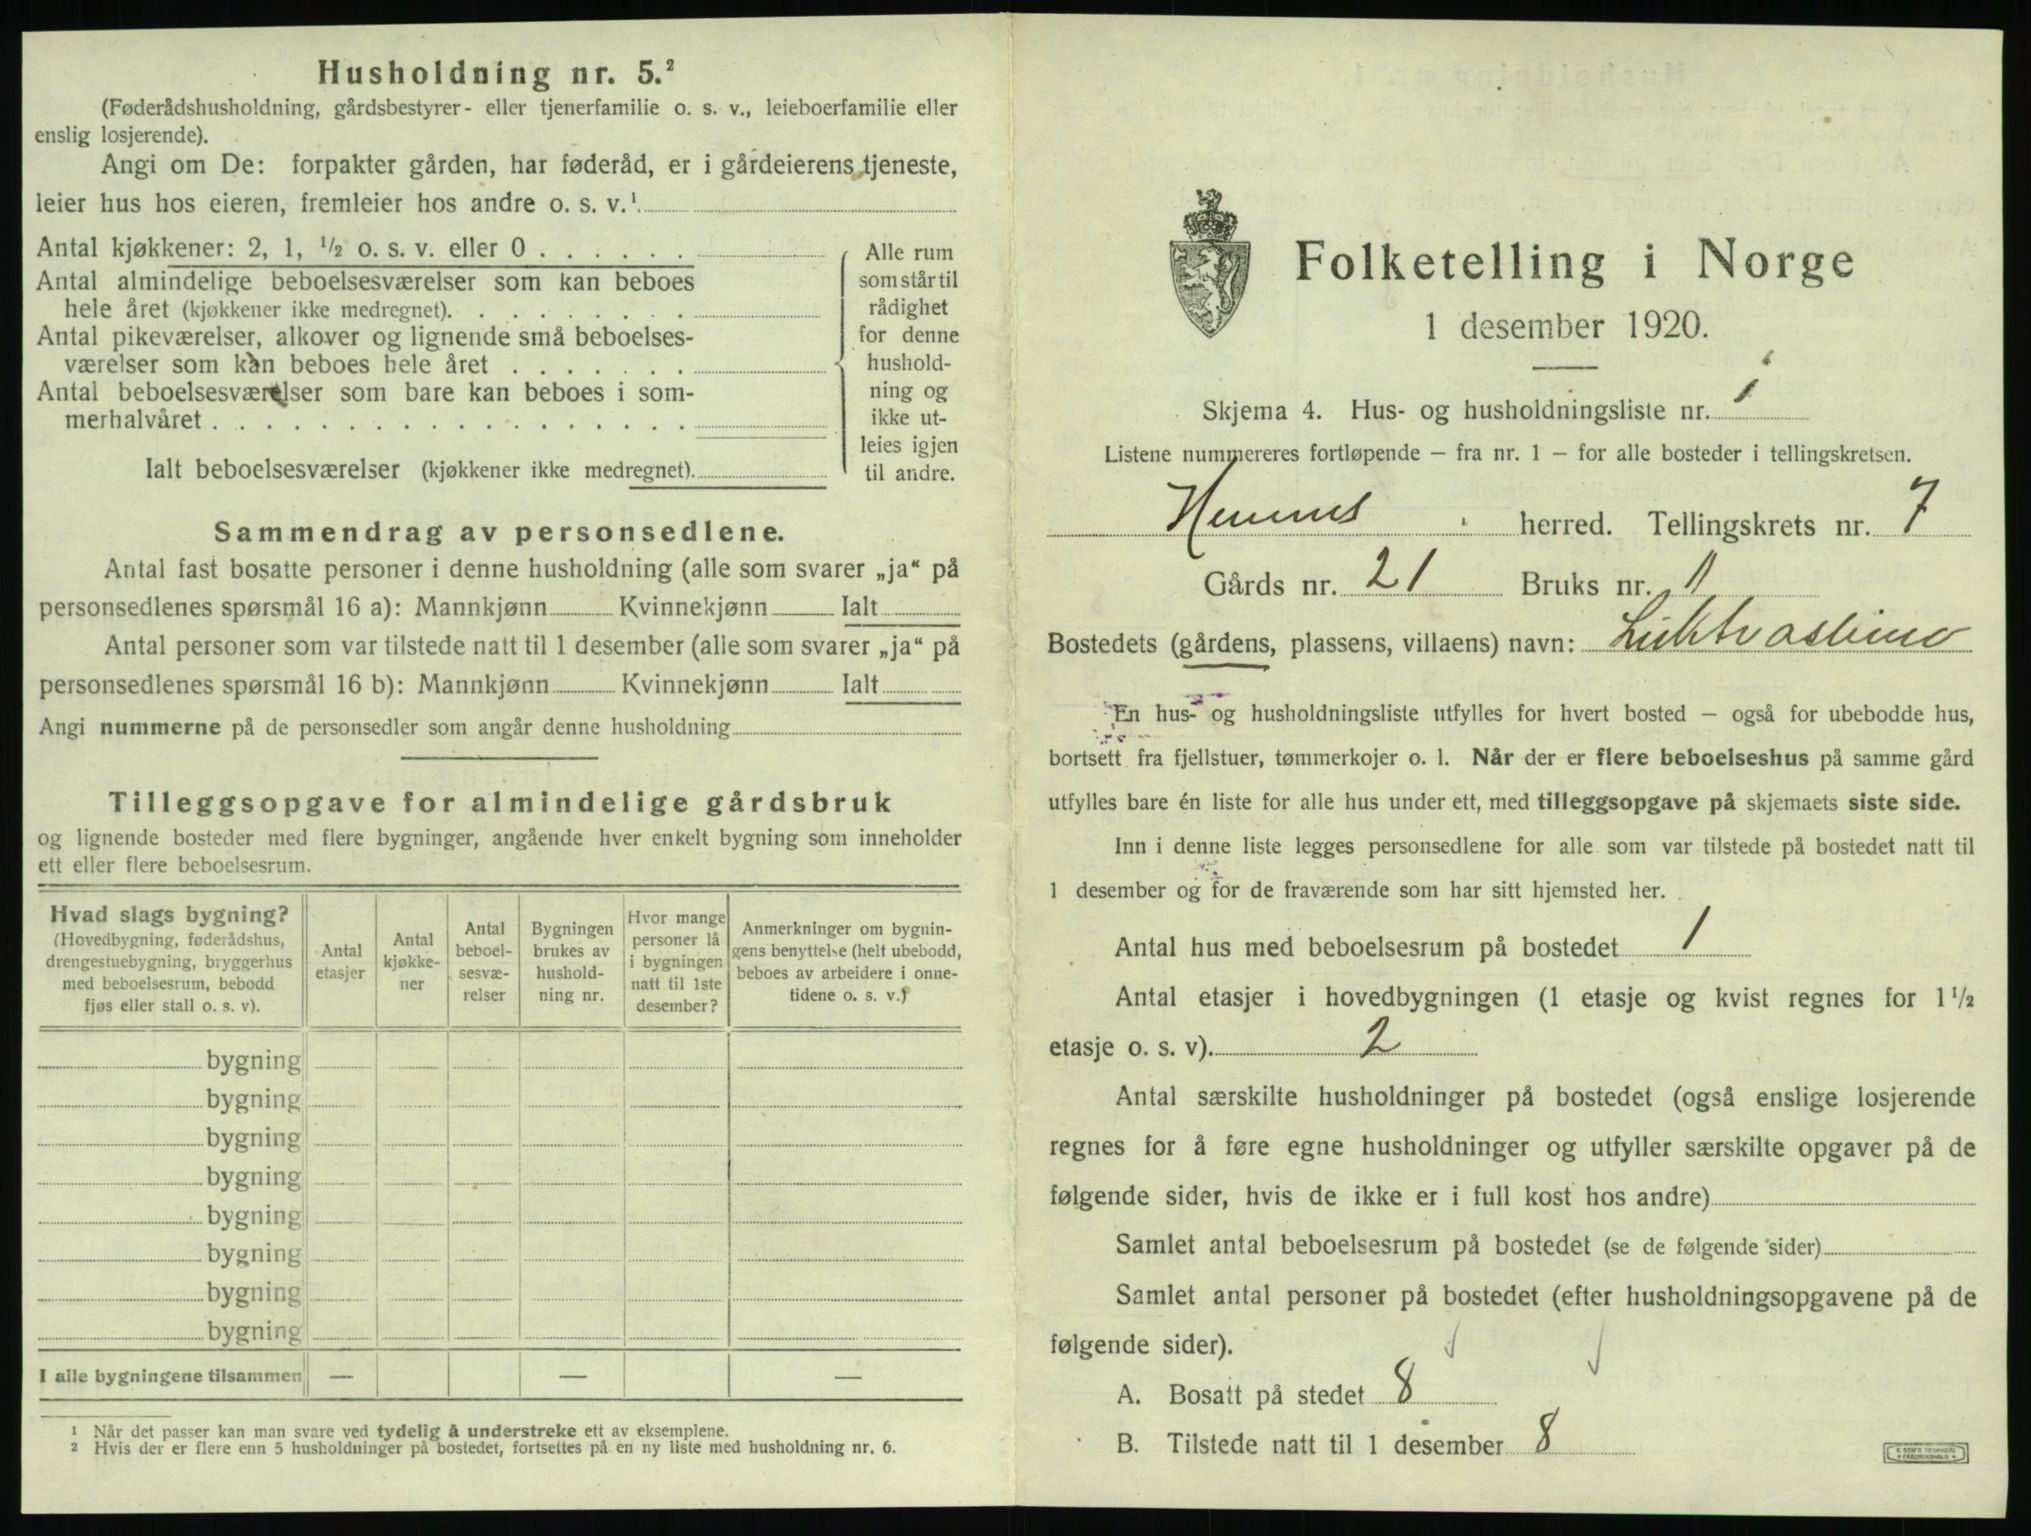 Husholdning nr. 5.²
(Føderådshusholdning, gårdsbestyrer- eller tjenerfamilie o. s. v., leieboerfamilie eller
enslig losjerende).
Angi om De: forpakter gården, har føderåd, er i gårdeierens tjeneste,
leier hus hos eieren, fremleier hos andre o. s. v.¹
Antal kjøkkener: 2, 1, ½ o. s. v. eller 0
Antal almindelige beboelsesværelser som kan beboes
hele året (kjøkkener ikke medregnet).
Antal pikeværelser, alkover og lignende små beboelses-
værelser som kan beboes hele året
Antal beboelsesværelser som bare kan beboes i som-
merhalvåret
Ialt beboelsesværelser (kjøkkener ikke medregnet).
Alle rum
som står til
rådighet
for denne
hushold-
ning og
ikke ut-
leies igjen
til andre.
Sammendrag av personsedlene.
Antal fast bosatte personer i denne husholdning (alle som svarer „ja“ på
personsedlenes spørsmål 16 a): Mannkjønn Kvinnekjønn Ialt
Antal personer som var tilstede natt til 1 desember (alle som svarer „ja“ på
personsedlenes spørsmål 16 b): Mannkjønn Kvinnekjønn Ialt
Angi nummerne på de personsedler som angår denne husholdning
Tilleggsopgave for almindelige gårdsbruk
og lignende bosteder med flere bygninger, angående hver enkelt bygning som inneholder
ett eller flere beboelsesrum.
Hvad slags bygning?
(Hovedbygning, føderådshus,
drengestuebygning, bryggerhus
med beboelsesrum, bebodd
fjøs eller stall o. s. v).
Antal
etasjer
Antal
kjøkke-
ner
Antal
beboel-
sesvæ-
relser
Bygningen
brukes av
hushold-
ning nr.
Hvor mange
personer lå
i bygningen
natt til 1ste
desember?
Anmerkninger om bygnin-
gens benyttelse (helt ubebodd,
beboes av arbeidere i onne-
tidene o. s. v.)
bygning
bygning
bygning
bygning
bygning
bygning
bygning
bygning
I alle bygningene tilsammen — — —
¹ Når det passer kan man svare ved tydelig å understreke ett av eksemplene.
² Hvis der er flere enn 5 husholdninger på bostedet, fortsettes på en ny liste med husholdning nr. 6.
Folketelling i Norge
1 desember 1920.
Skjema 4. Hus- og husholdningsliste nr. 1
Listene nummereres fortløpende – fra nr. 1 – for alle bosteder i tellingskretsen.
Hemnes herred. Tellingskrets nr. 7
Gårds nr. 21 Bruks nr. 11
Bostedets (gårdens, plassens, villaens) navn:
En hus- og husholdningsliste utfylles for hvert bosted – også for ubebodde hus,
bortsett fra fjellstuer, tømmerkojer o. l. Når der er flere beboelseshus på samme gård
utfylles bare én liste for alle hus under ett, med tilleggsopgave på skjemaets siste side.
Inn i denne liste legges personsedlene for alle som var tilstede på bostedet natt til
1 desember og for de fraværende som har sitt hjemsted her.
Antal hus med beboelsesrum på bostedet 1
Antal etasjer i hovedbygningen (1 etasje og kvist regnes for 1½
etasje o. s. v). 2
Antal særskilte husholdninger på bostedet (også enslige losjerende
regnes for å føre egne husholdninger og utfyller særskilte opgaver på de
følgende sider, hvis de ikke er i full kost hos andre)
Samlet antal beboelsesrum på bostedet (se de følgende sider)
Samlet antal personer på bostedet (efter husholdningsopgavene på de
følgende sider).
A. Bosatt på stedet 8
B. Tilstede natt til 1 desember 8
E. SEM'S TRYKKERI
FREDRIKSHALD